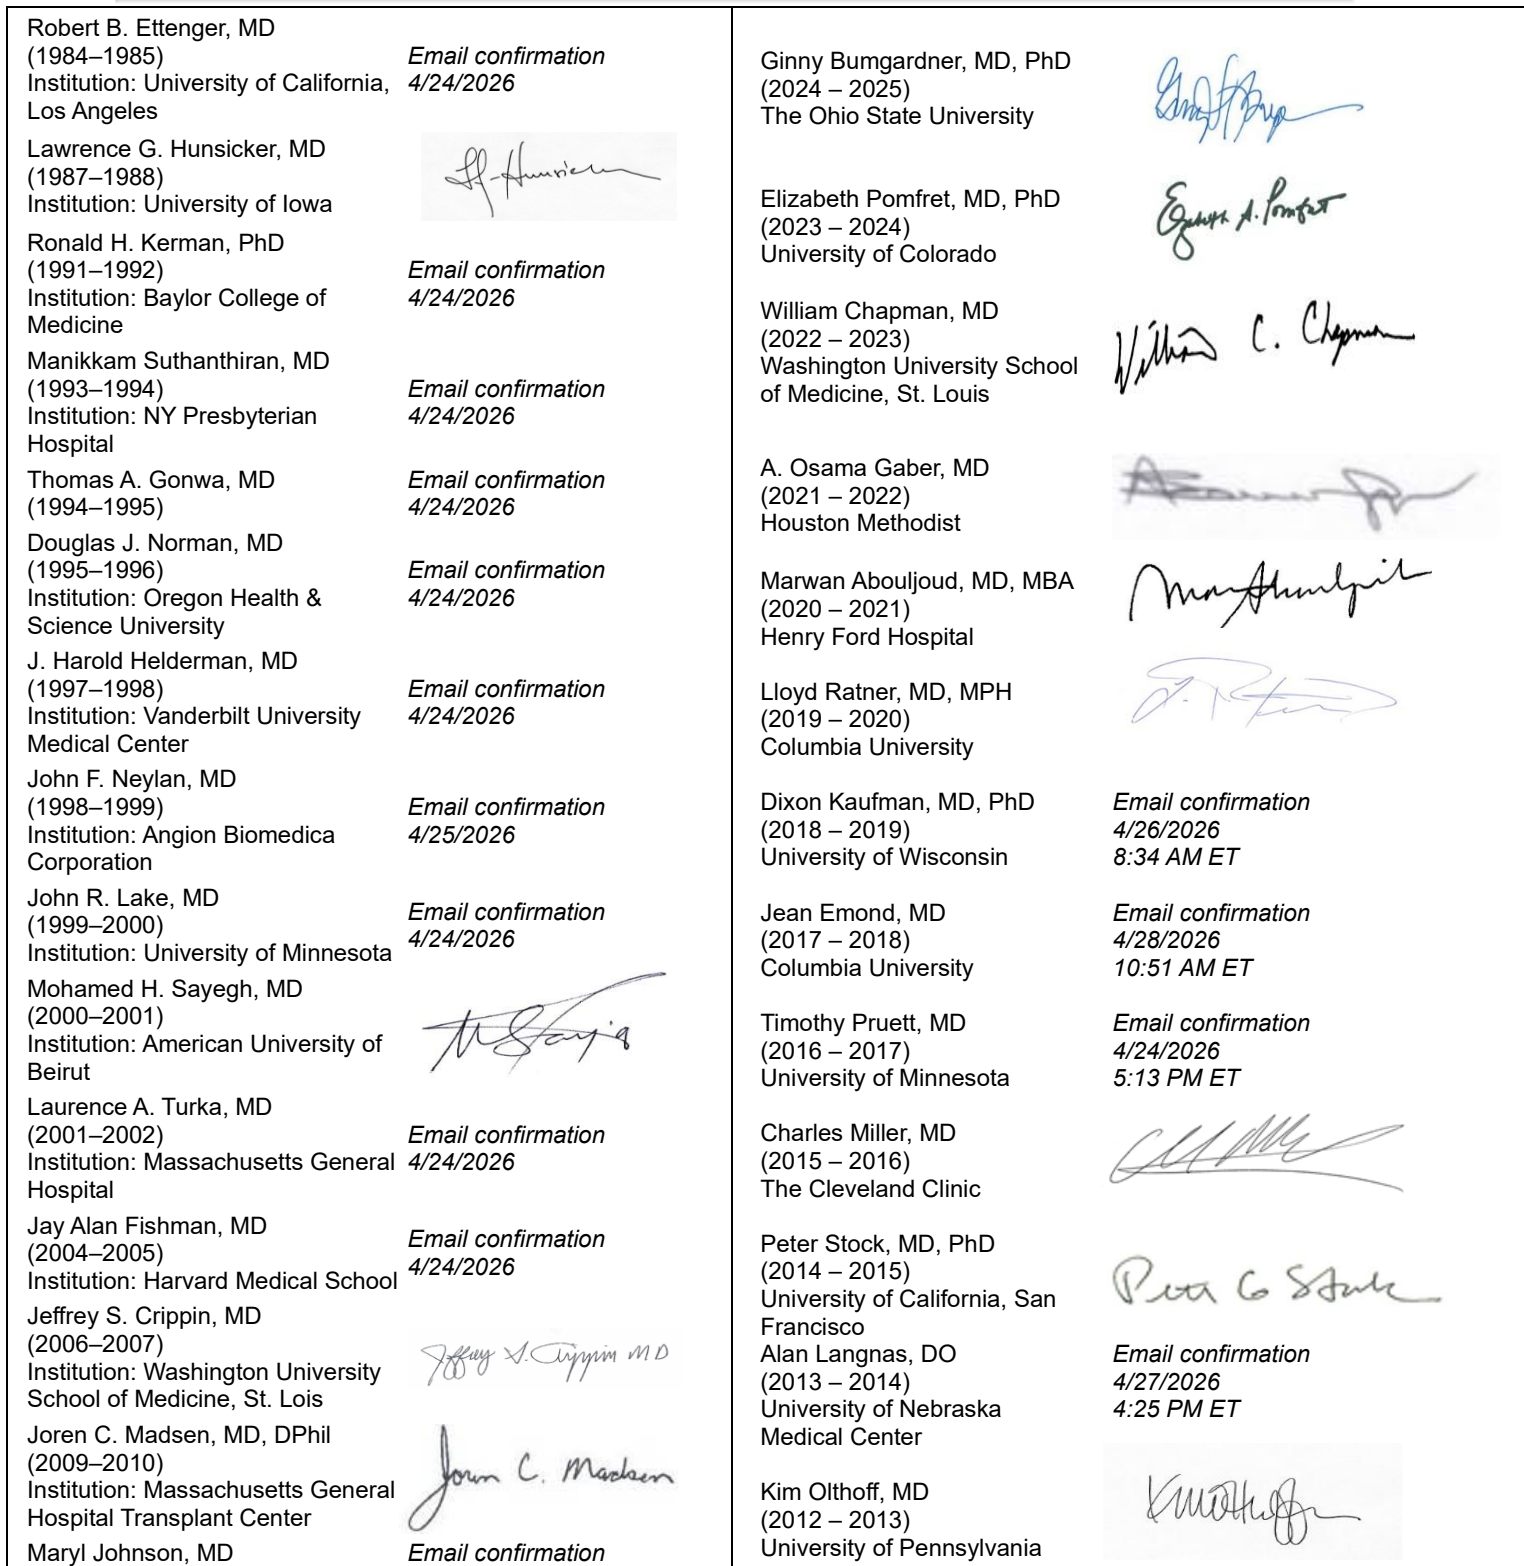 Robert B. Ettenger, MD
(1984–1985)
Institution: University of California,
Los Angeles
Email confirmation
4/24/2026
Lawrence G. Hunsicker, MD
(1987–1988)
Institution: University of Iowa
Ronald H. Kerman, PhD
(1991–1992)
Institution: Baylor College of
Medicine
Email confirmation
4/24/2026
Manikkam Suthanthiran, MD
(1993–1994)
Institution: NY Presbyterian
Hospital
Email confirmation
4/24/2026
Thomas A. Gonwa, MD
(1994–1995)
Email confirmation
4/24/2026
Douglas J. Norman, MD
(1995–1996)
Institution: Oregon Health &
Science University
Email confirmation
4/24/2026
J. Harold Helderman, MD
(1997–1998)
Institution: Vanderbilt University
Medical Center
Email confirmation
4/24/2026
John F. Neylan, MD
(1998–1999)
Institution: Angion Biomedica
Corporation
Email confirmation
4/25/2026
John R. Lake, MD
(1999–2000)
Institution: University of Minnesota
Email confirmation
4/24/2026
Mohamed H. Sayegh, MD
(2000–2001)
Institution: American University of
Beirut
Laurence A. Turka, MD
(2001–2002)
Institution: Massachusetts General
Hospital
Email confirmation
4/24/2026
Jay Alan Fishman, MD
(2004–2005)
Institution: Harvard Medical School
Email confirmation
4/24/2026
Jeffrey S. Crippin, MD
(2006–2007)
Institution: Washington University
School of Medicine, St. Lois
Jeffrey S. Crippin MD
Joren C. Madsen, MD, DPhil
(2009–2010)
Institution: Massachusetts General
Hospital Transplant Center
Joren C. Madsen
Maryl Johnson, MD
Email confirmation
Ginny Bumgardner, MD, PhD
(2024 – 2025)
The Ohio State University
Elizabeth Pomfret, MD, PhD
(2023 – 2024)
University of Colorado
Elizabeth A. Pomfret
William Chapman, MD
(2022 – 2023)
Washington University School
of Medicine, St. Louis
William C. Chapman
A. Osama Gaber, MD
(2021 – 2022)
Houston Methodist
Marwan Abouljoud, MD, MBA
(2020 – 2021)
Henry Ford Hospital
Lloyd Ratner, MD, MPH
(2019 – 2020)
Columbia University
Dixon Kaufman, MD, PhD
(2018 – 2019)
University of Wisconsin
Email confirmation
4/26/2026
8:34 AM ET
Jean Emond, MD
(2017 – 2018)
Columbia University
Email confirmation
4/28/2026
10:51 AM ET
Timothy Pruett, MD
(2016 – 2017)
University of Minnesota
Email confirmation
4/24/2026
5:13 PM ET
Charles Miller, MD
(2015 – 2016)
The Cleveland Clinic
Peter Stock, MD, PhD
(2014 – 2015)
University of California, San
Francisco
Peter G Stock
Alan Langnas, DO
(2013 – 2014)
University of Nebraska
Medical Center
Email confirmation
4/27/2026
4:25 PM ET
Kim Olthoff, MD
(2012 – 2013)
University of Pennsylvania